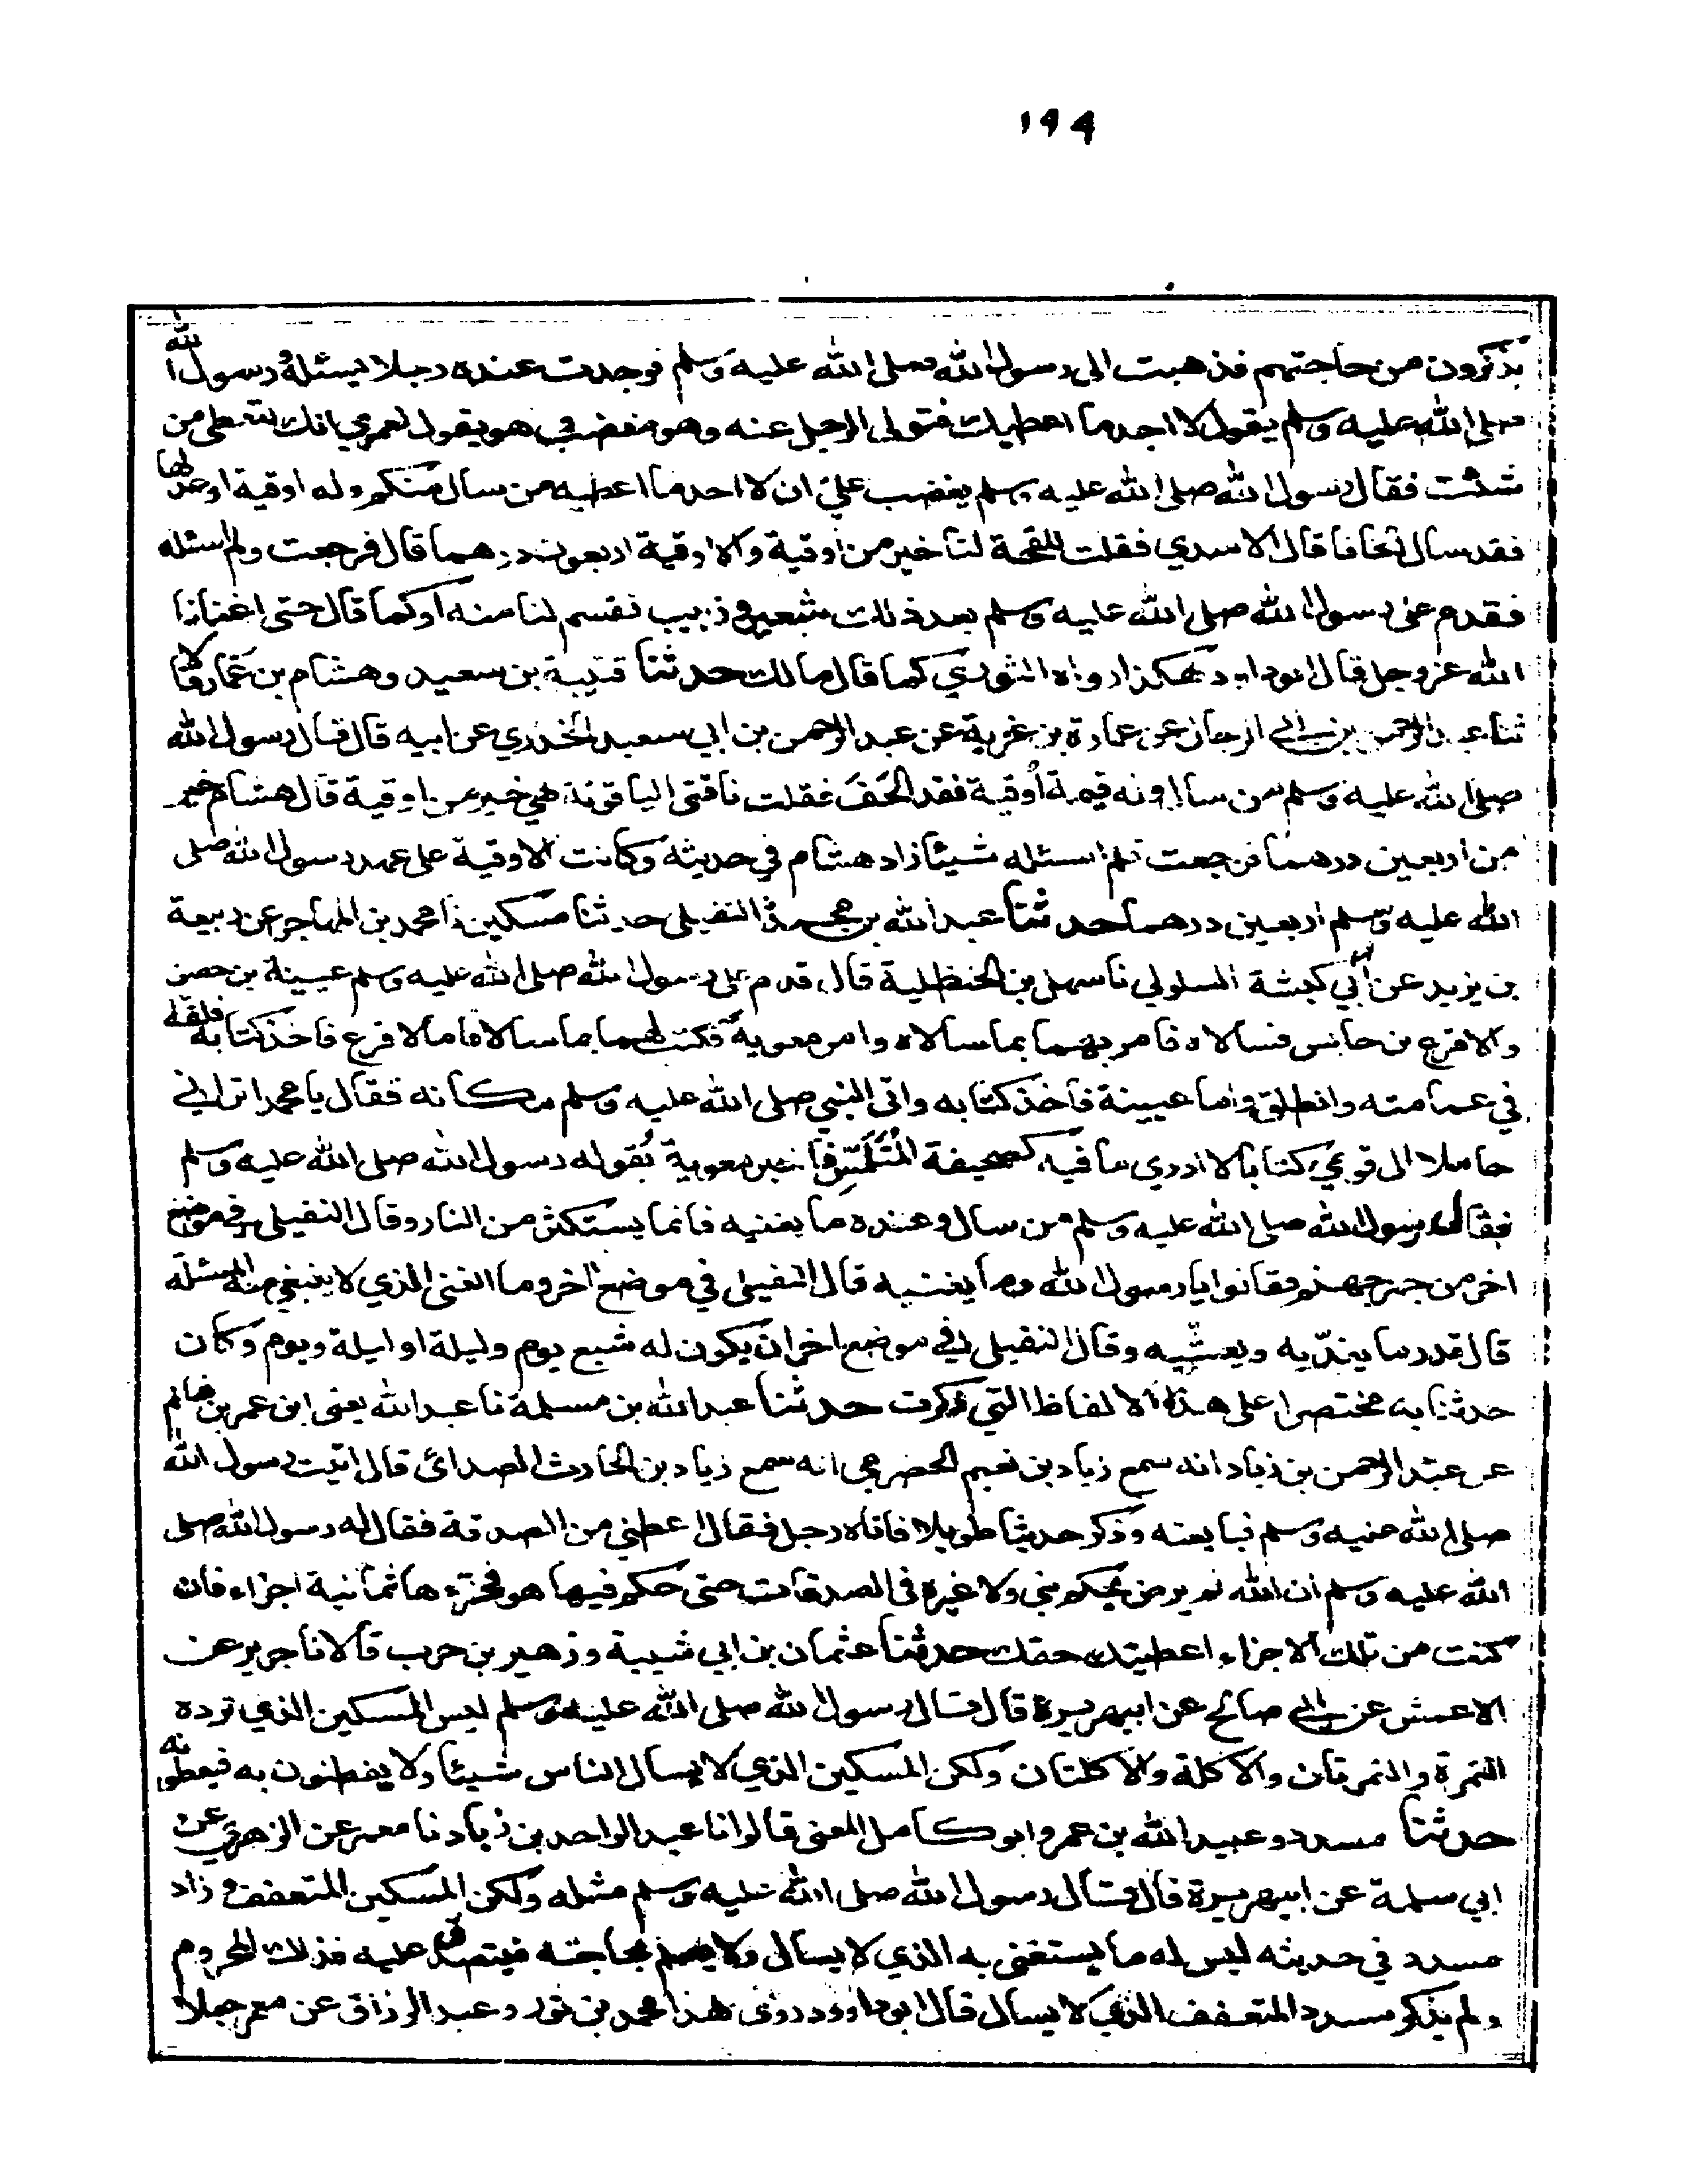 ١٩٩
يذكرون من حاجتهم فذهبت الى رسول الله صلى الله عليه وسلم فوجدت عنده رجلا يسئله ورسول الله
صلى الله عليه وسلم يقول لا اجد ما اعطيك فتولى الرجل عنه وهو مغضب هو يقول لعمري انك لتعطى من
شئت فقال رسول الله صلى الله عليه وسلم يغضب علي ان لا اجد ما اعطيه من سال منكم وله اوقية او عدلها
فقد سال الحافا قال الاسدي فقلت للقحة لنا خير من اوقية والاوقية اربعون درهما قال فرجعت ولم اسئله
فقدم على رسول الله صلى الله عليه وسلم بعد ذلك شعير وزبيب فقسم لنا منه او كما قال حتى اغنانا
الله عز وجل قال ابو داود هكذا رواه الثوري كما قال مالك حدثنا قتيبة بن سعيد وهشام بن عمار قالا
ثنا عبد الرحمن بن ابي الرجال عن عمارة بن غزية عن عبد الرحمن بن ابي سعيد الخدري عن ابيه قال قال رسول الله
صلى الله عليه وسلم من سال وله قيمة اوقية فقد الحف فقلت ناقتي الياقوتة هي خير من اوقية قال هشام خير
من اربعين درهما فرجعت فلم اسئله شيئا زاد هشام في حديثه وكانت الاوقية على عهد رسول الله صلى
الله عليه وسلم اربعين درهما حدثنا عبد الله بن محمد النفيلي حدثنا مسكين نا محمد بن المهاجر عن ربيعة
بن يزيد عن ابي كبشة السلولي نا سهل بن الحنظلية قال قدم على رسول الله صلى الله عليه وسلم عيينة بن حصن
والاقرع بن حابس فسالاه فامر بهما بما سالاه وامر معوية فكتب لهما بما سالا فاما الاقرع فاخذ كتابه فلفه
في عمامته وانطلق واما عيينة فاخذ كتابه واتى النبي صلى الله عليه وسلم مكانه فقال يا محمد اتراني
حاملا الى قومي كتابا لا ادري ما فيه كصحيفة المتلمس فاخبر معوية بقوله رسول الله صلى الله عليه وسلم
فقال رسول الله صلى الله عليه وسلم من سال وعنده ما يغنيه فانما يستكثر من النار وقال النفيلي في موضع
اخر من جمر جهنم فقالوا يا رسول الله وما يغنيه قال النفيلي في موضع اخر وما الغنى الذي لا ينبغي معه المسئلة
قال قدر ما يغديه ويعشيه وقال النفيلي في موضع اخر ان يكون له شبع يوم وليلة او ليلة ويوم وكان
حدثنا به مختصرا على هذه الالفاظ التي ذكرت حدثنا عبد الله بن مسلمة نا عبد الله يعني ابن عمر بن غانم
عن عبد الرحمن بن زياد انه سمع زياد بن نعيم الحضرمي انه سمع زياد بن الحارث الصدائي قال اتيت رسول الله
صلى الله عليه وسلم فبايعته وذكر حديثا طويلا فاتاه رجل فقال اعطني من الصدقة فقال له رسول الله صلى
الله عليه وسلم ان الله لم يرض بحكم نبي ولا غيره في الصدقات حتى حكم فيها هو فجزءها ثمانية اجزاء فان
كنت من تلك الاجزاء اعطيتك حقك حدثنا عثمان بن ابي شيبة وزهير بن حرب قالا نا جرير عن
الاعمش عن ابي صالح عن ابيهريرة قال قال رسول الله صلى الله عليه وسلم ليس المسكين الذي ترده
التمرة والتمرتان والاكلة والاكلتان ولكن المسكين الذي لا يسال الناس شيئا ولا يفطنون به فيعطونه
حدثنا مسدد وعبيد الله بن عمر وابو كامل المعنى قالوا نا عبد الواحد بن زياد نا معمر عن الزهري عن
ابي سلمة عن ابيهريرة قال قال رسول الله صلى الله عليه وسلم مثله ولكن المسكين المتعفف زاد
مسدد في حديثه ليس له ما يستغني به الذي لا يسال ولا يعلم بحاجته فيتصدق عليه فذلك المحروم
ولم يذكر مسدد المتعفف الذي لا يسال قال ابو داود روى هذا محمد بن ثور وعبد الرزاق عن معمر جعلا